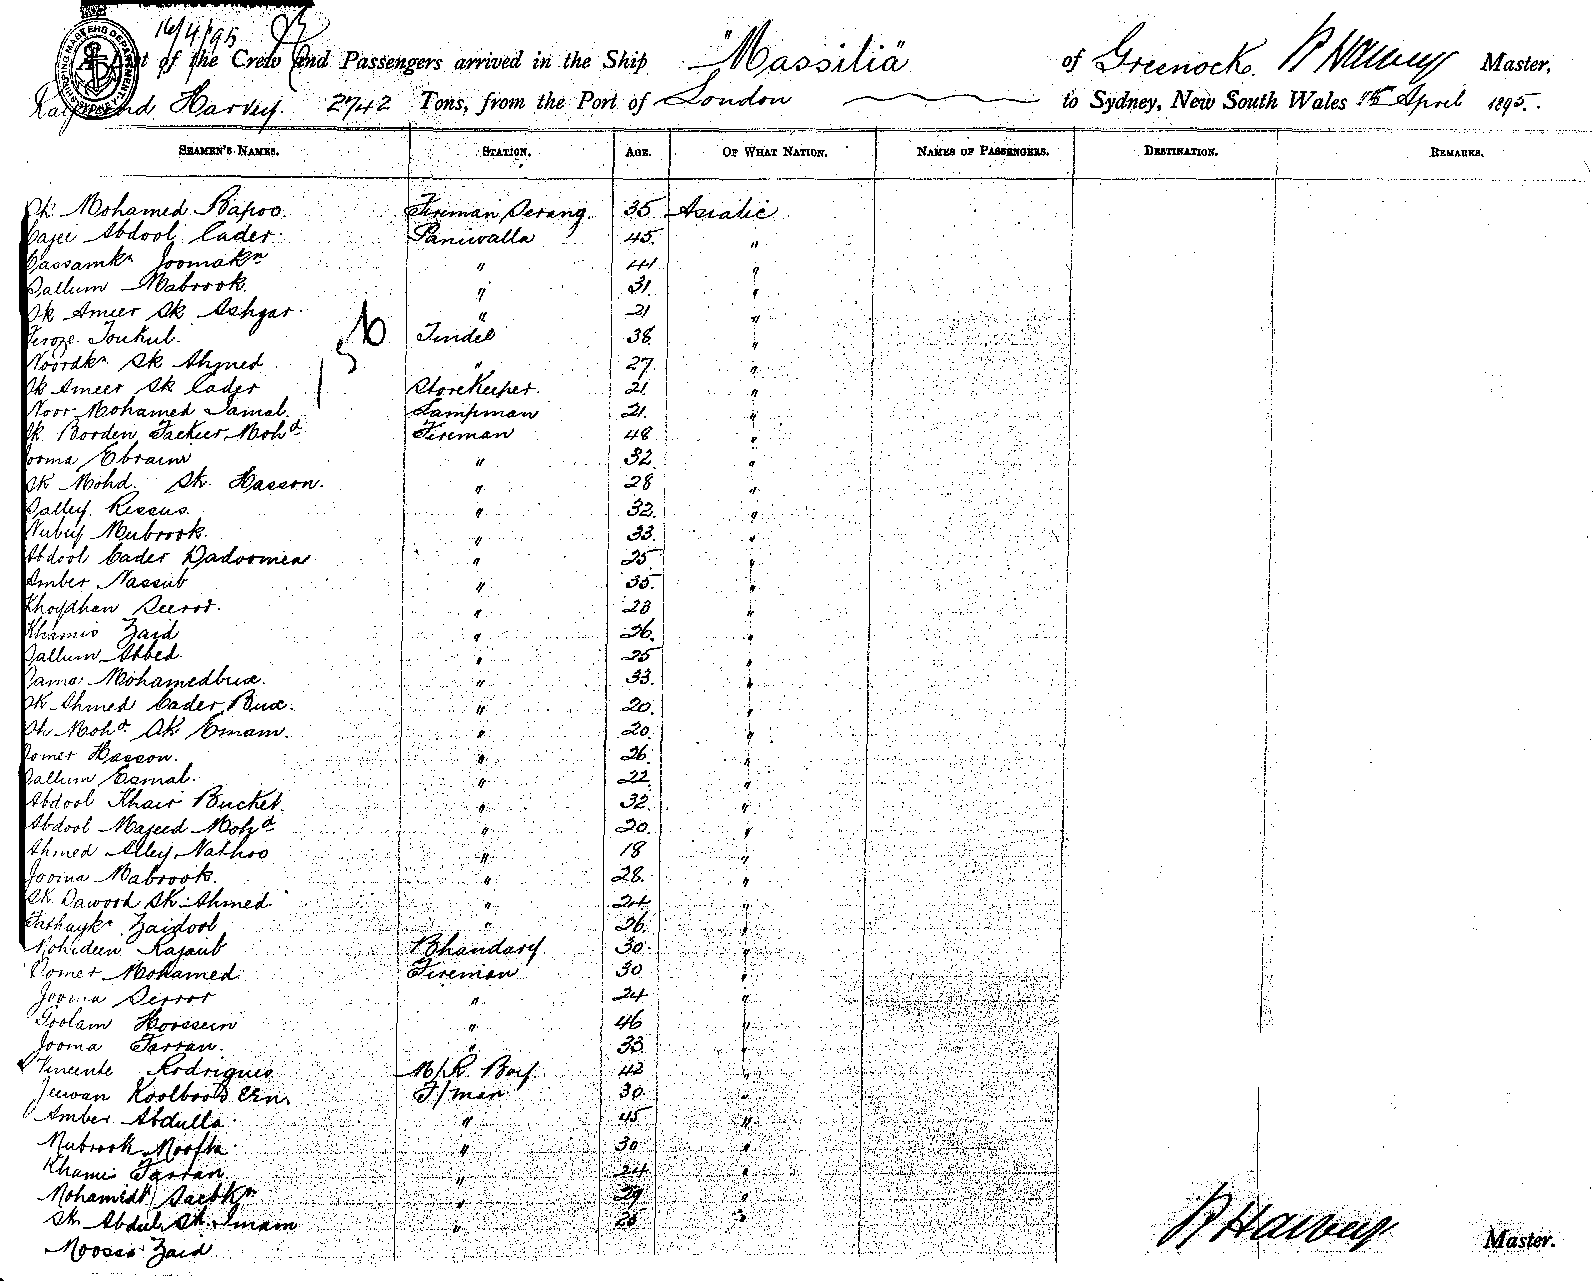 16/4/95
SHIPPING MASTERS DEPARTMENT SYDNEY
List of the Crew and Passengers arrived in the Ship "Massilia" of Greenock, R Harvey Master,
Raymond Harvey. 2742 Tons, from the Port of London to Sydney, New South Wales 15th April 1895.
SEAMEN'S NAMES. STATION. AGE. OF WHAT NATION. NAMES OF PASSENGERS. DESTINATION. REMARKS.
Sk Mohamed Bapoo. Fireman Serang. 35 Asiatic
Abdool Cader Paniwalla 45 "
Joomakn " 41 "
Mabrook. " 31 "
Sk Ameer Sk Ashgar " 21 "
Feroze Toukul. Tindel 38 "
Noordkn Sk Ahmed " 27 "
Sk Ameer Sk Cader StoreKeeper. 21 "
Noor Mohamed Jamal. Lampman 21. "
Sk Booden Fackeer Mohd Fireman 48 "
Jooma Ebraim " 32 "
Sk Mohd. Sk Hasson. " 28 "
" 32. "
Mubrook. " 33. "
Abdool Cader Dadoomea " 25 "
Amber Nassub " 35. "
" 23 "
Khamis Zaid " 26. "
Abbed " 25 "
Mohamedbux. " 33. "
Sk Ahmed Cader Bux. " 20. "
Sk Mohd Sk Emam. " 20. "
Hasson. " 26. "
Esmal. " 22. "
Abdool Khair Bucket " 32. "
Abdool Majeed Mohd " 20. "
Ahmed Alley Nathoo " 18 "
Jooma Mabrook. " 28. "
Sk. Dawood Sk Ahmed " 24 "
Zaidool " 26. "
Mohideen Rajaub Bhandary 30 "
Mohamed Fireman 30 "
Jooma Serror " 24 "
Goolam Hoossein " 46 "
Jooma Farran. " 33 "
Vincente Rodrigues M/R. Boy 42 "
Jeewan F/man 30. "
Amber Abdulla " 45 "
Mubrook " 30 "
Khamis Farran " 24 "
" 29 "
Sk Abdul Sk. Imam " 25 "
Moosa Zaid
R Harvey Master.